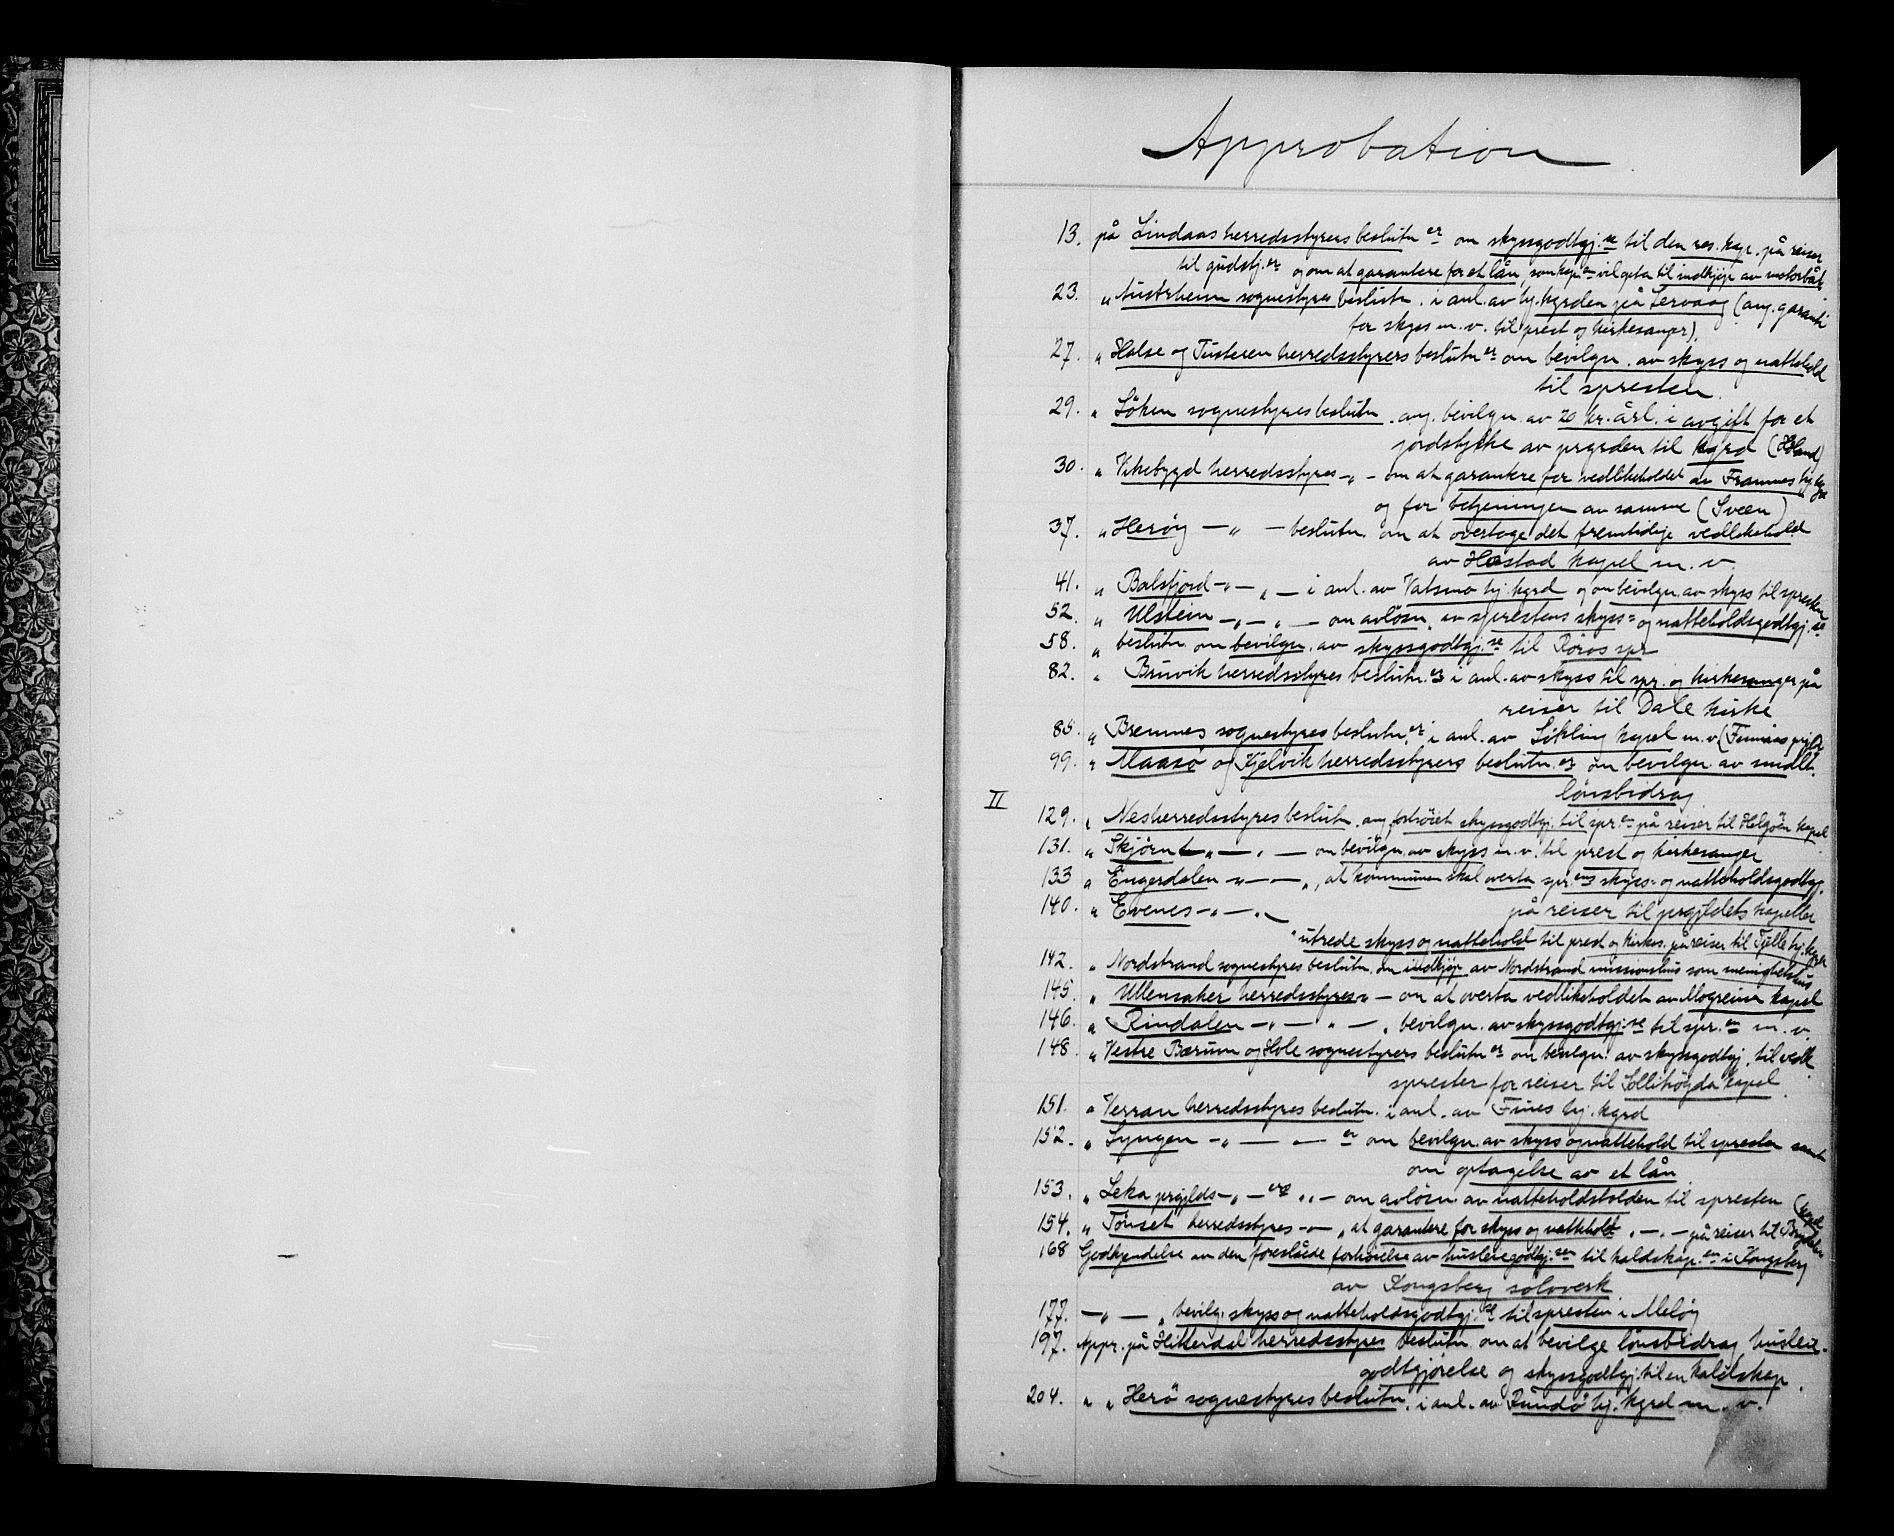 Approbation
13. på Lindaas herredsstyrers beslutn.er om skyssgodtgj.se til den res. kap. på reiser
til gudstj.er og om at garantere for et lån, som kap.en vil opta til indkjøp av motorbåt
23. " Austrheim sognestyres beslutn. i anl. av hj. kgrden på Lervaag (ang. garanti
for skyss m. v. til prest og kirkesanger).
27. " Halse og Tusteren herredsstyrers beslutn.er om bevilgn. av skyss og nattehold
til spresten.
29. " Söken sognestyres beslutn. ang. bevilgn. av 20 kr. årl. i avgift for et
jordstykke av prgrden til kgrd (Höland)
30. " Vikebygd herredsstyres - " - om at garantere for vedlikeholdet av Framnes hj.
og for betjeningen av samme (Sveen)
37. " Herøy — " — beslutn. om at overtage det fremtidige vedlikehold
av Hestad kapel m. v.
41. " Balsfjord - " - " — i anl. av Vatsmo hj. kgrd og om bevilgn. av skyss til spresten
52. " Ulstein - " - " — om avløsn. av sprestens skyss- og natteholdsgodtgj.se
58. " beslutn. om bevilgn. av skyssgodtgj.se til Röros spr
82. " Bruvik herredsstyres beslutn.er i anl. av skyss til spr. og kirkesanger på
reiser til Dale kirke
85. " Bremnes sognestyres beslutn.er i anl. av Lökling kapel m. v. (Finnaas prgld)
99. " Maasö og Kjelvik herredsstyrers beslutn.er om bevilgn. av midlt.
lönsbidrag
II
129. " Nes herredsstyres beslutn. ang. forhöiet skyssgodtgj. til spr.en på reiser til Helgöen kapel
131. " Skjørn - " — " — om bevilgn. av skyss m. v. til prest og kirkesanger
133 " Engerdalen - " — — ", at kommunen skal overta spr.ens skyss- og natteholdsgodtgj.
på reiser til prgjldets kapeller
140. " Evenes - " — " —
" utrede skyss og nattehold til prest og kirkes. på reiser til Tjelle hj. kgrd
142. " Nordstrand sognestyres beslutn. om indkjöp av Nordstrand missionshus som menighetshus
145. " Ullensaker herredsstyres " — om at overta vedlikeholdet av Mogreina kapel
146. " Rindalen - " — " — " bevilgn. av skyssgodtgj.se til spr.en m. v.
148. " Vestre Bærum og Hole sognestyrers beslutn.er om bevilgn. av skyssgodtgj. til vedk.
sprester for reiser til Sollihögda kapel.
151. " Verran herredsstyres beslutn. i anl. av Fines hj. kgrd
152. " Lyngen - " — — er om bevilgn. av skyss og nattehold til spresten samt
om optagelse av et lån
153. " Leka prgjelds - " — ers " — om avlösn. av natteholdsholden til spresten
154. " Tönset herredsstyres - " — " at garantere for skyss og nattehold " — " — på reiser til Brydalen kapel
168 Godkjendelse av den foreslåede forhöielse av husleiegodtgj.sen til kaldskap.en i Kongsberg
av Kongsberg sölvverk
177. — " — " bevilg. skyss og natteholdsgodtgj.se til spresten i Melöy
197. Appr. på Hitterdal herredsstyres beslutn. om at bevilge lönsbidrag, husleie-
godtgjörelse og skyssgodtgj. til en kaldskap.
204. " " Herö sognestyres beslutn. i anl. av Rundö hj. kgrd m. v.